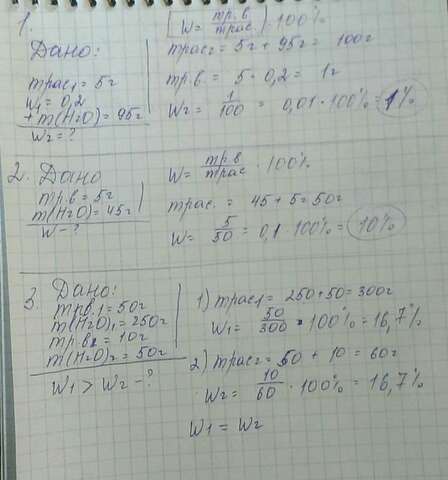 1.
[w = mр.в / mрас] · 100%
Дано:
mрас₁ = 5г
w₁ = 0,2
+ m(H₂O) = 95г
w₂ = ?
mрас₂ = 5г + 95г = 100г
mр.в = 5 · 0,2 = 1г
w₂ = 1/100 = 0,01 · 100% = 1%
2. Дано
mр.в = 5г
m(H₂O) = 45г
w - ?
w = mр.в / mрас · 100%
mрас. = 45 + 5 = 50г
w = 5/50 = 0,1 · 100% = 10%
3. Дано:
mрв.1 = 50г
m(H₂O)₁ = 250г
mр.в2 = 10г
m(H₂O)₂ = 50г
w₁ > w₂ - ?
1) mрас₁ = 250 + 50 = 300г
w₁ = 50/300 · 100% = 16,7%
2) mрас₂ = 50 + 10 = 60г
w₂ = 10/60 · 100% = 16,7%
w₁ = w₂